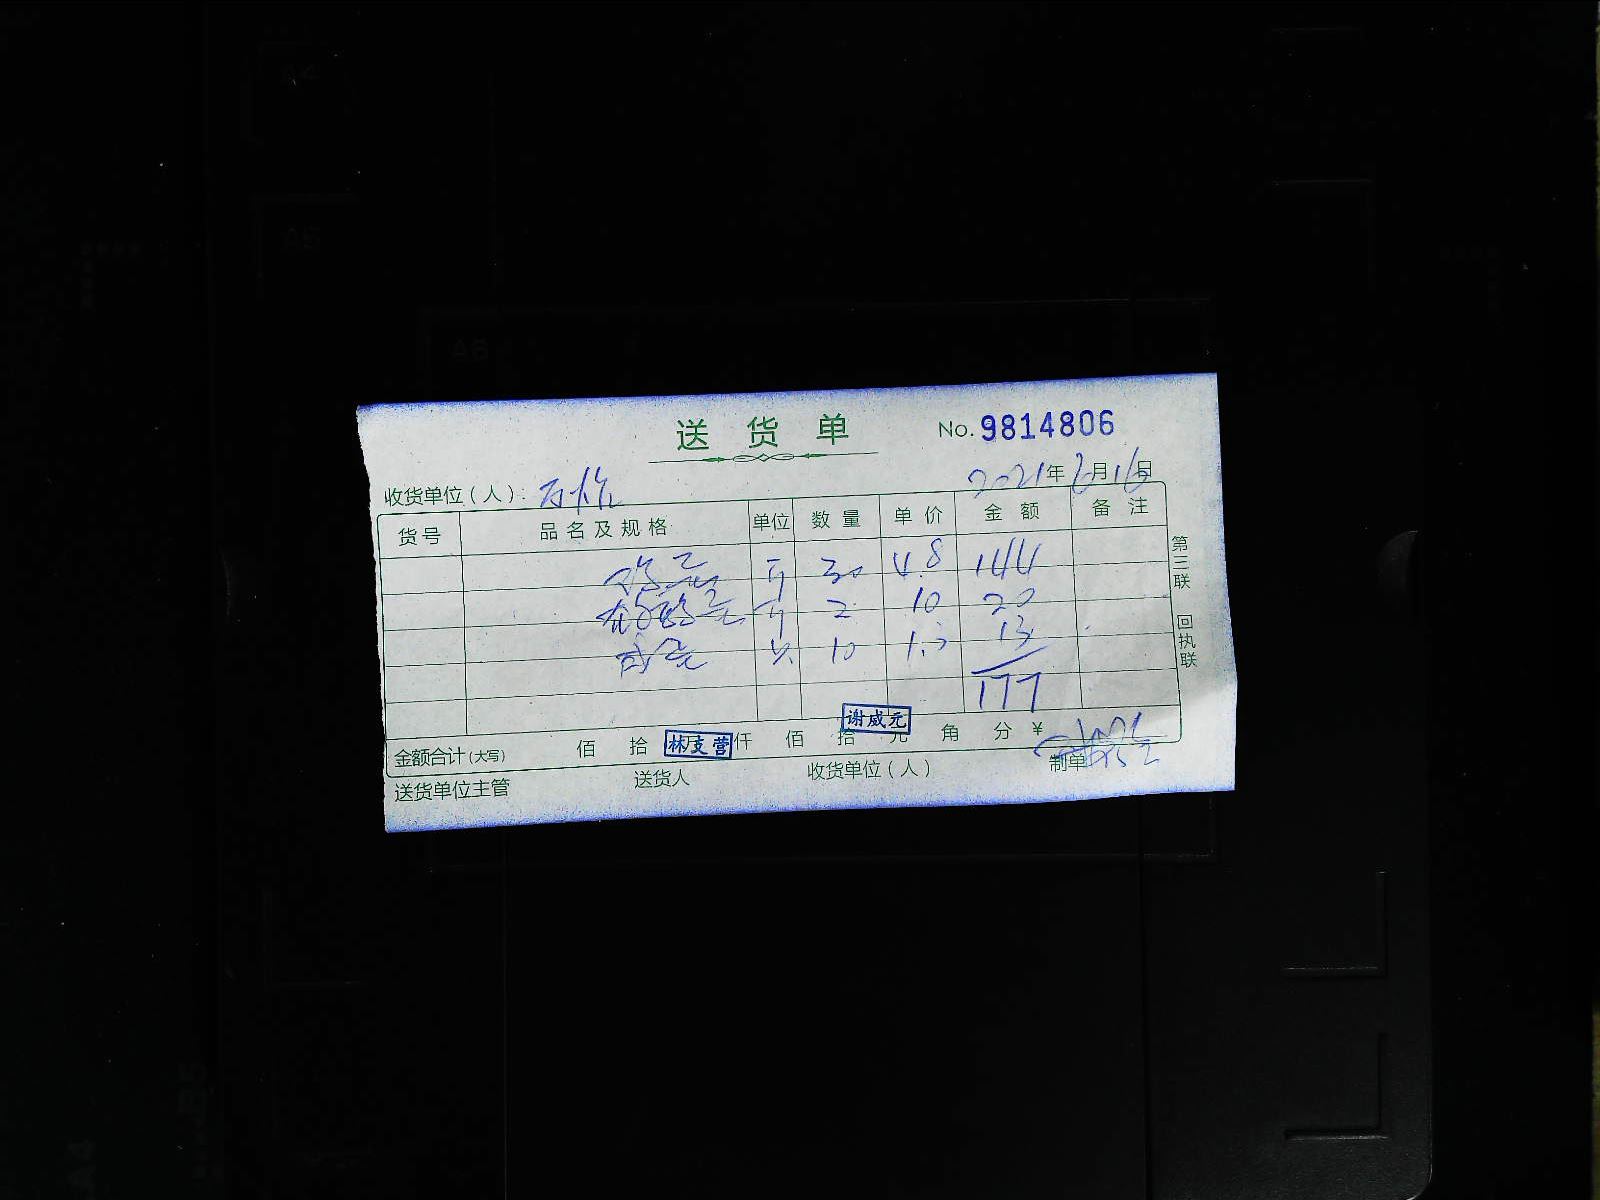 送货单
No. 9814806
收货单位(人):
2021年6月16日
货号 品名及规格 单位 数量 单价 金额 备注
鸡蛋 斤 30 4.8 144
斤 2 10 20
咸蛋 10 1.3 13
177
谢威元
金额合计(大写) 佰 拾 万 仟 佰 拾 元 角 分 ¥
林支营
送货单位主管 送货人 收货单位(人) 制单
第三联 回执联
A6
A5
A4